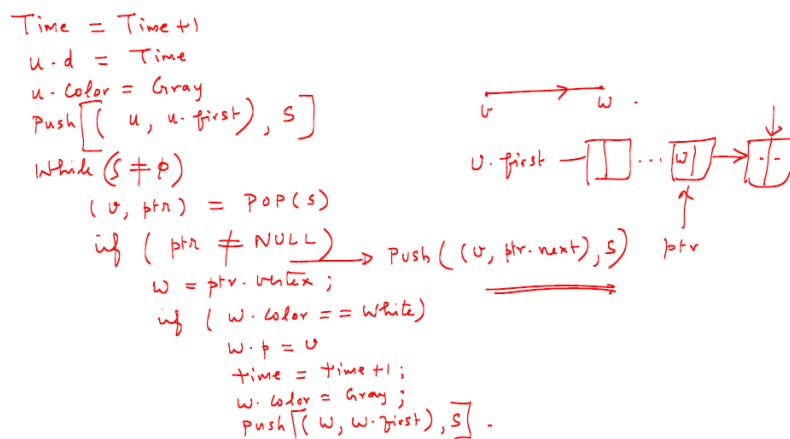 Time = Time+1
u.d = Time
u.color = Gray
Push[(u, u.first), S]
While (S ≠ φ)
(v, ptr) = POP(S)
if ( ptr ≠ NULL) → Push((v, ptr.next), S)
w = ptr.vertex ;
if ( w.color == White)
w.p = v
time = time+1 ;
w.color = Gray ;
push[(w, w.first), S] .
v w .
v.first ... w
ptr